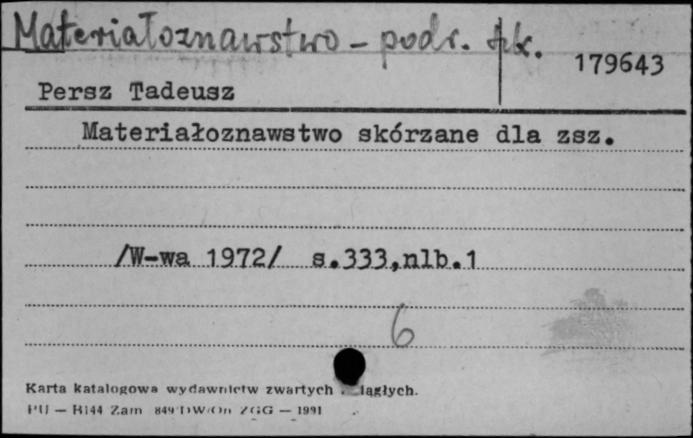 Materiałoznawstwo - podr. szk.
179643
Persz Tadeusz
Materiałoznawstwo skórzane dla zsz.
/W-wa 1972/ s.333,nlb.1
6
Karta katalogowa wydawnictw zwartych iągłych.
PU — H144 Zam 849 DW/On ZGG — 1991